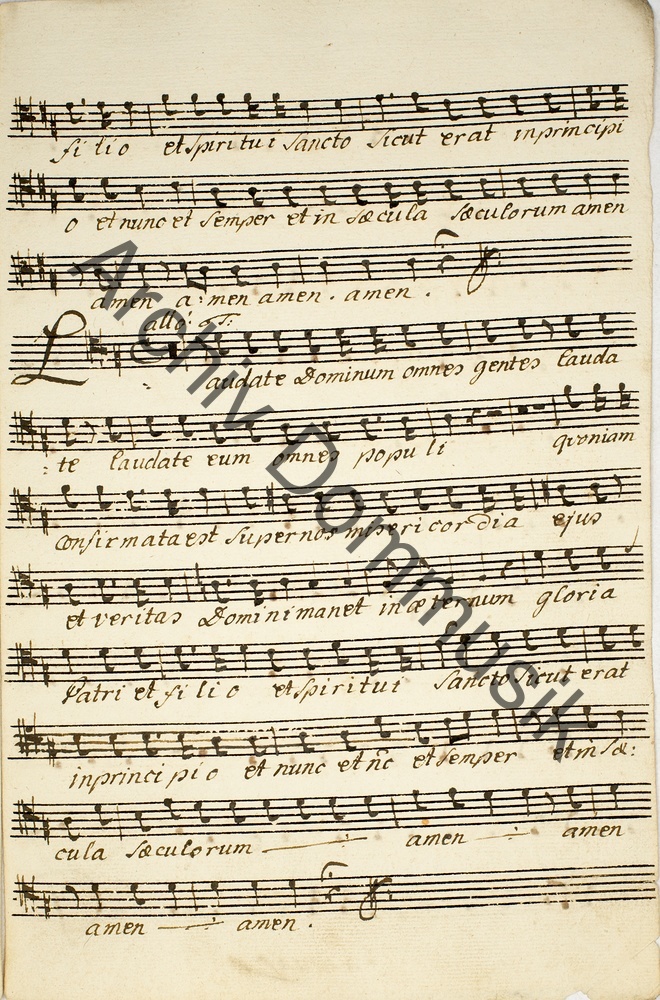 fi li o et spiri tu i sancto sicut erat in principi
o et nunc et semper et in sæcula sæculorum amen
amen a:men amen. amen.
all:o
Laudate Dominum omnes gentes lauda
:te laudate eum omnes popu li quoniam
confirmata est super nos misericordia ejus
et veritas Domini manet in æternum gloria
Patri et fi li o et spiritui sancto sicut erat
in princi pi o et nunc et nc̄ et semper et in sæ:
cula sæculorum amen amen
amen amen.
Archiv Dommusik